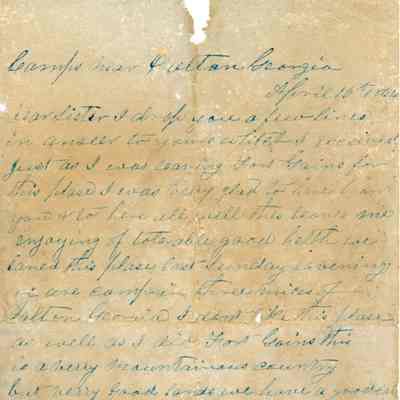 Camps near Dalton Georgia
April 16th
Dear Sister I drop you a few lines
in answer to yours which I received
just as I was leaving Fort Gains for
this place I was very glad to
to here well this leaves me
enjoying of tolerable good helth we
laned this place last Sunday evening
we are campt three miles of
Dalton Georgia I dont like this place
as well as I did Fort Gains this
is a very mountainous country
but very good lands we have a good